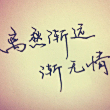 离愁渐远
渐无情